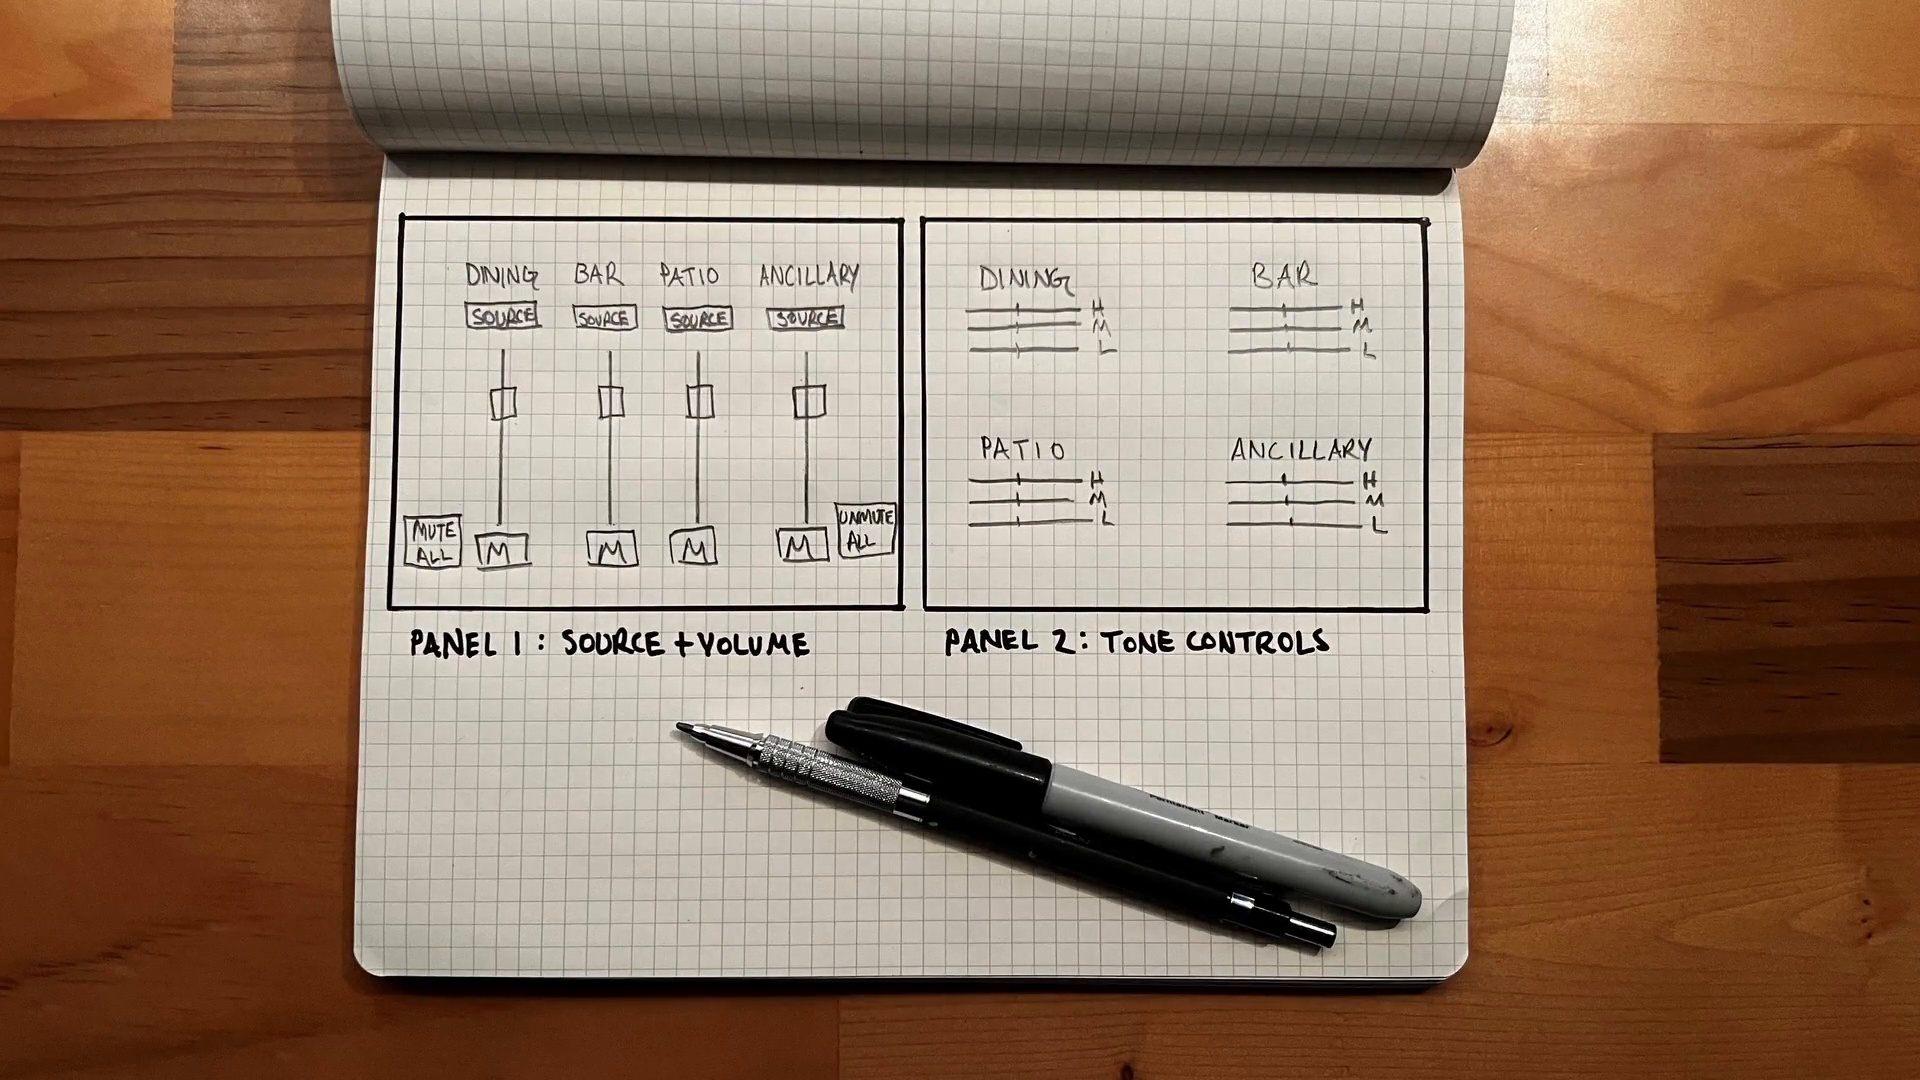 DINING BAR PATIO ANCILLARY
SOURCE SOURCE SOURCE SOURCE
MUTE ALL M M M M UNMUTE ALL
PANEL 1: SOURCE + VOLUME
DINING
H
M
L
BAR
H
M
L
PATIO
H
M
L
ANCILLARY
H
M
L
PANEL 2: TONE CONTROLS
Permanent Marker